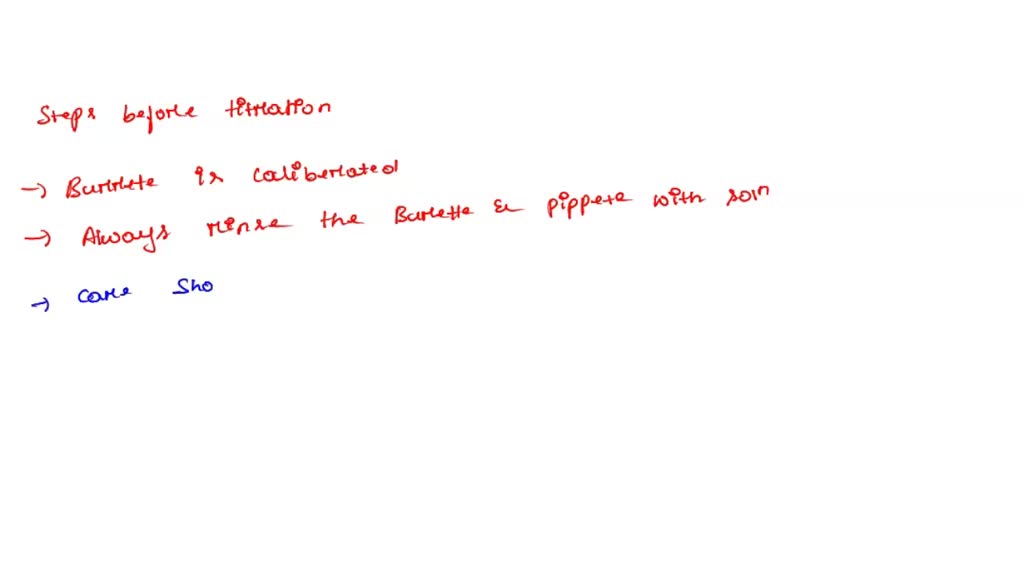 Steps before titration
→ Burrete is caliberated
→ Always rinse the Burette & pippete with soln
→ Care Sho